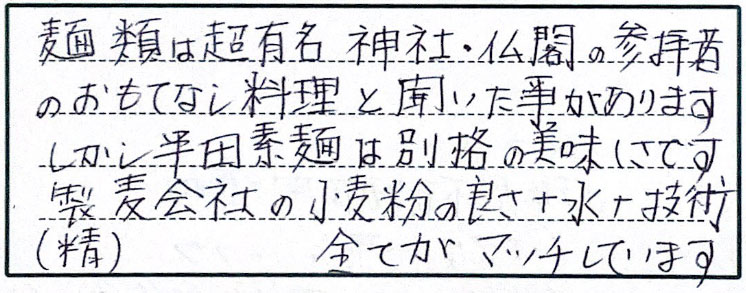 麺類は超有名 神社・仏閣の参拝者
のおもてなし料理と聞いた事があります
しかし半田素麺は別格の美味しさです
製麦会社の小麦粉の良さ+水+技術
(精) 全てがマッチしています